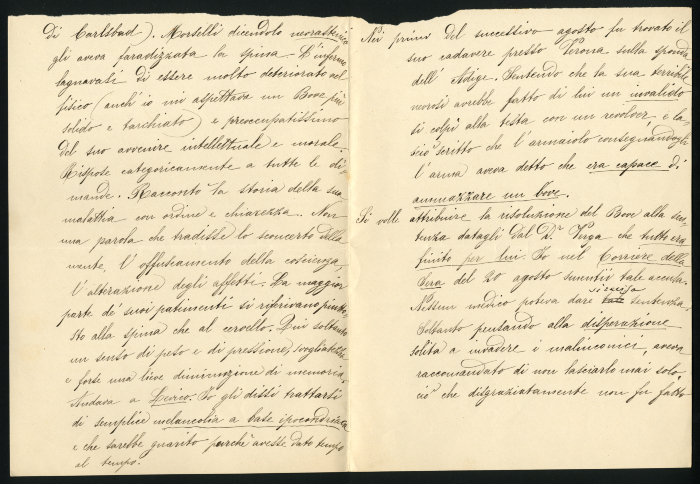 di Carlsbad). Morselli dicendolo neurastenico
gli aveva faradizzata la spina. L'infermo
lagnavasi di essere molto deteriorato nel
fisico (anch'io mi aspettava un Bove più
solido e tarchiato) e preoccupatissimo
del suo avvenire intellettuale e morale.
Rispose categoricamente a tutte le di
mande. Raccontò la storia della sua
malattia con ordine e chiarezza. Non
una parola che tradisse lo sconcerto della
mente, l'offuscamento della coscienza,
l'alterazione degli affetti. La maggior
parte de' suoi patimenti si riferivano piutto
sto alla spina che al cervello. Qui soltanto
un senso di peso e di pressione, svogliatezza
e forse una lieve diminuzione di memoria.
Andava a Recco. Io gli dissi trattarsi
di semplice melancolia a base ipocondriaca
e che sarebbe guarito purchè avesse dato tempo
al tempo.
Nei primi del successivo agosto fu trovato il
suo cadavere presso Verona sulla sponda
dell'Adige. Sentendo che la sua terribile
nevrosi avrebbe fatto di lui un invalido
si colpì alla testa con un revolver, e la
sciò scritto che l'armaiolo consegnandogli
l'arma aveva detto che era capace di
ammazzare un bove.
Si volle attribuire la risoluzione del Bove alla sen
tenza datagli dal Dr. Verga che tutto era
finito per lui. Io nel Corriere della
Sera del 20 agosto smentii tale accusa.
Nessun medico poteva dare simile sentenza.
Soltanto pensando alla disperazione
solita a invadere i malinconici, aveva
raccomandato di non lasciarlo mai solo,
ciò che disgraziatamente non fu fatto